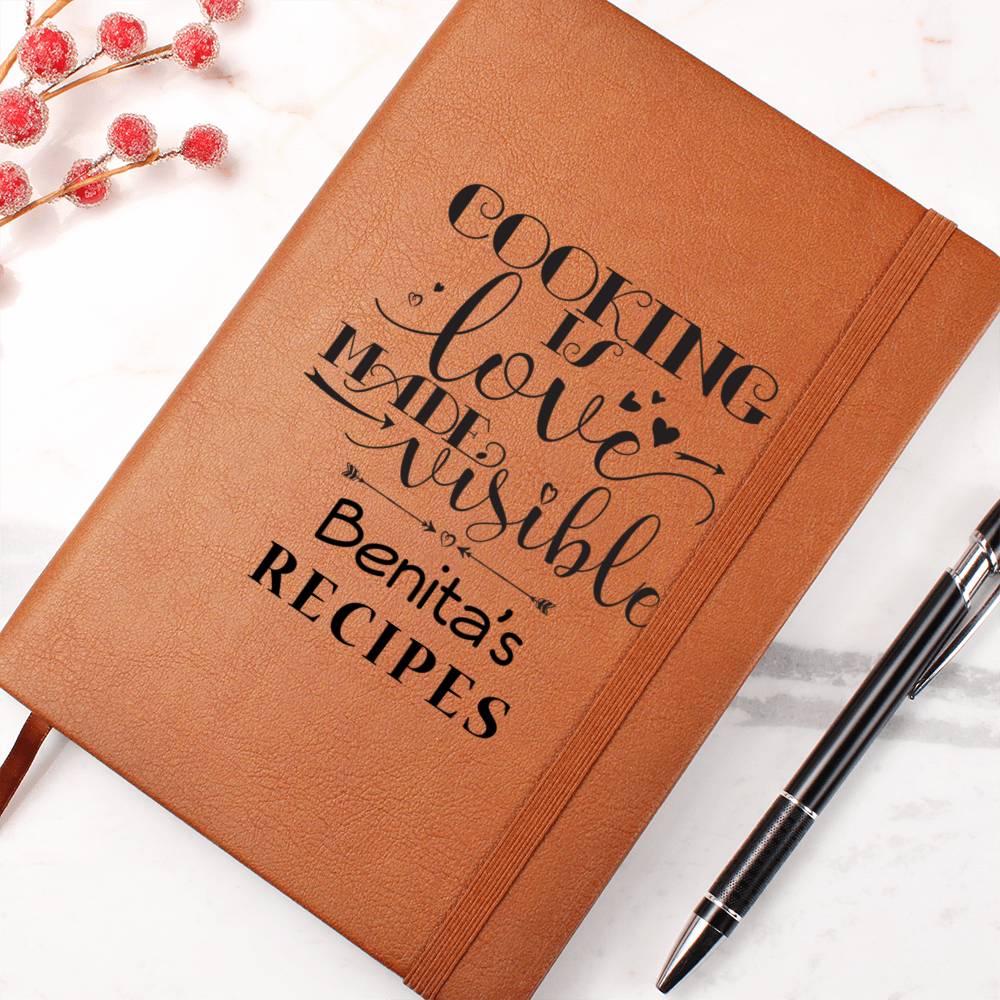 COOKING
IS
love
MADE
visible
Benita's
RECIPES